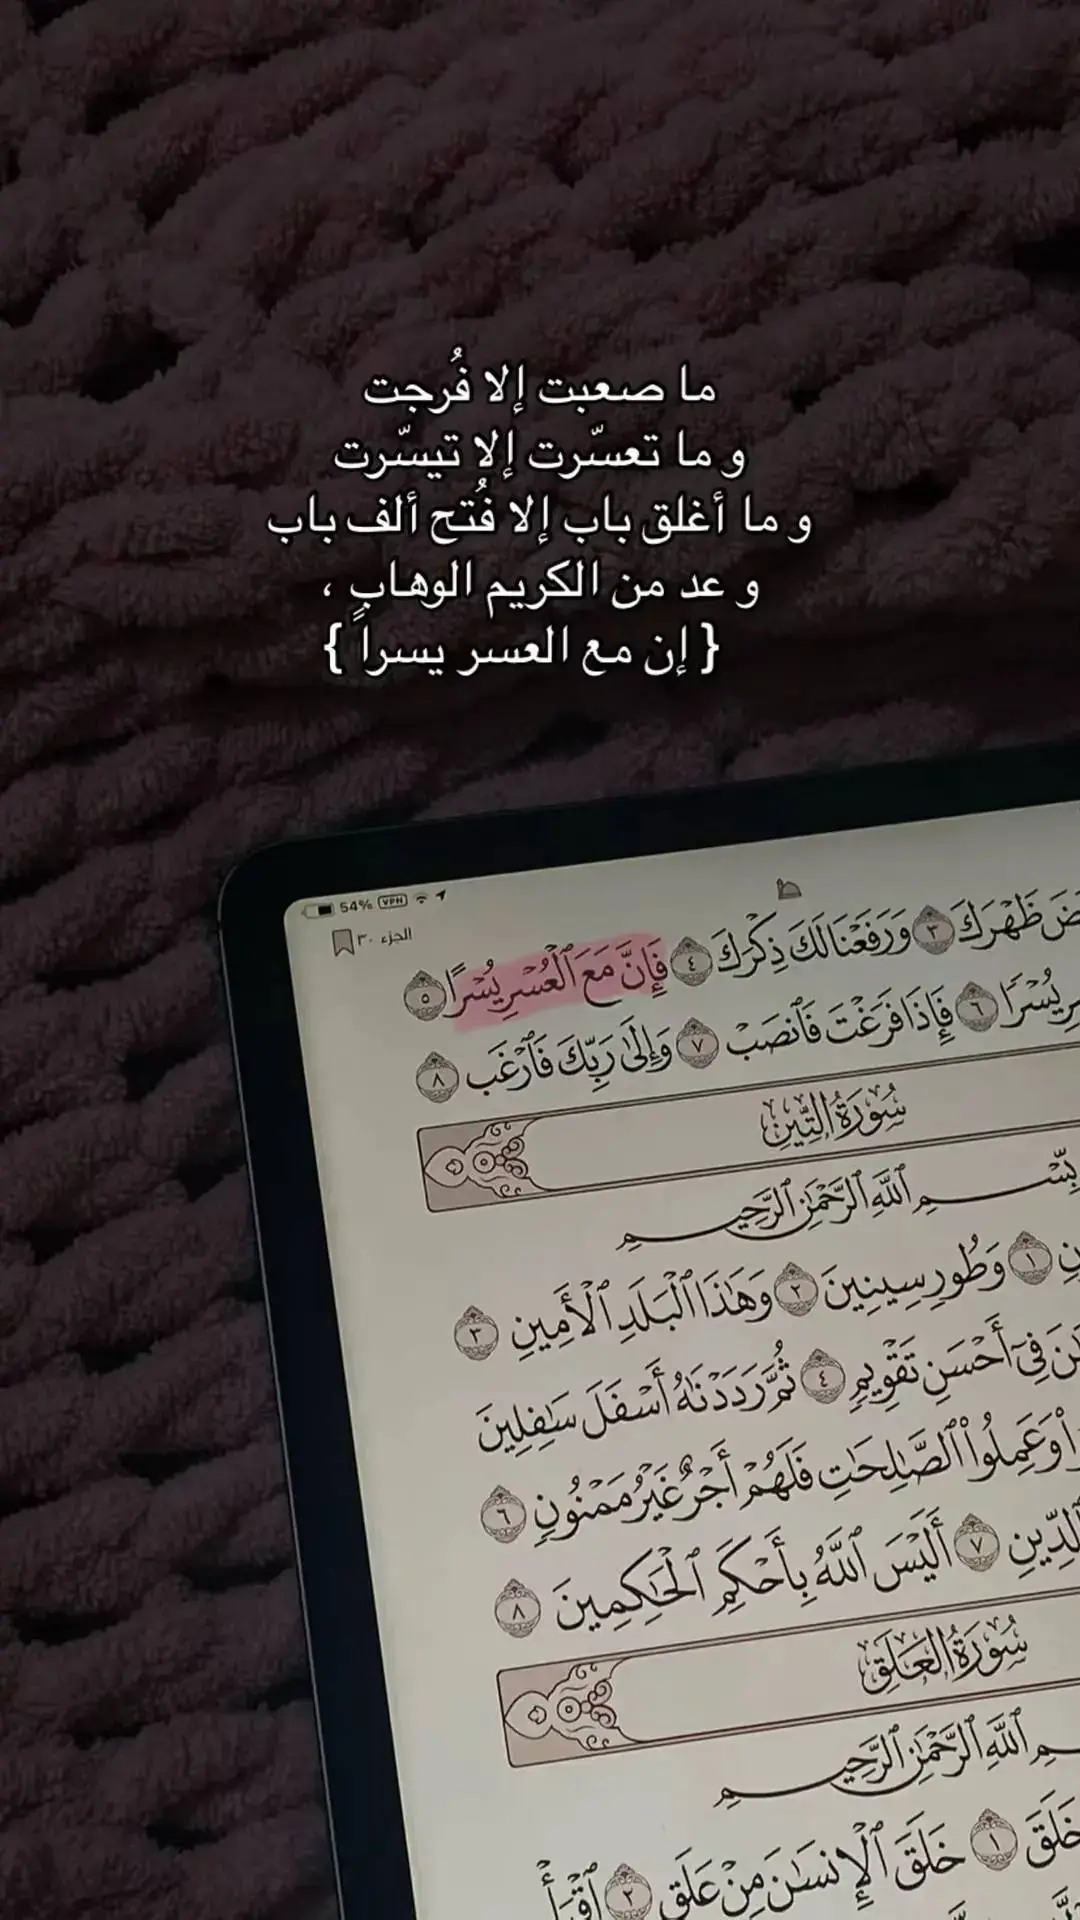 ما صعبت إلا فُرجت
و ما تعسّرت إلا تيسّرت
و ما أغلق باب إلا فُتح ألف باب
و عد من الكريم الوهاب ،
{ إن مع العسر يسراً }
54% VPN
الجزء ٣٠
ظَهْرَكَ ٣ وَرَفَعْنَا لَكَ ذِكْرَكَ ٤ فَإِنَّ مَعَ ٱلْعُسْرِ يُسْرًا ٥
يُسْرًا ٦ فَإِذَا فَرَغْتَ فَٱنصَبْ ٧ وَإِلَىٰ رَبِّكَ فَٱرْغَب ٨
سُورَةُ التِّينِ
بِسْمِ ٱللَّهِ ٱلرَّحْمَٰنِ ٱلرَّحِيمِ
١ وَطُورِ سِينِينَ ٢ وَهَٰذَا ٱلْبَلَدِ ٱلْأَمِينِ ٣
فِىٓ أَحْسَنِ تَقْوِيمٍ ٤ ثُمَّ رَدَدْنَٰهُ أَسْفَلَ سَٰفِلِينَ
وَعَمِلُوا۟ ٱلصَّٰلِحَٰتِ فَلَهُمْ أَجْرٌ غَيْرُ مَمْنُونٍ ٦
ٱلدِّينِ ٧ أَلَيْسَ ٱللَّهُ بِأَحْكَمِ ٱلْحَٰكِمِينَ ٨
سُورَةُ العَلَقِ
ٱللَّهِ ٱلرَّحْمَٰنِ ٱلرَّحِيمِ
خَلَقَ ١ خَلَقَ ٱلْإِنسَٰنَ مِنْ عَلَقٍ ٢ ٱقْرَأْ